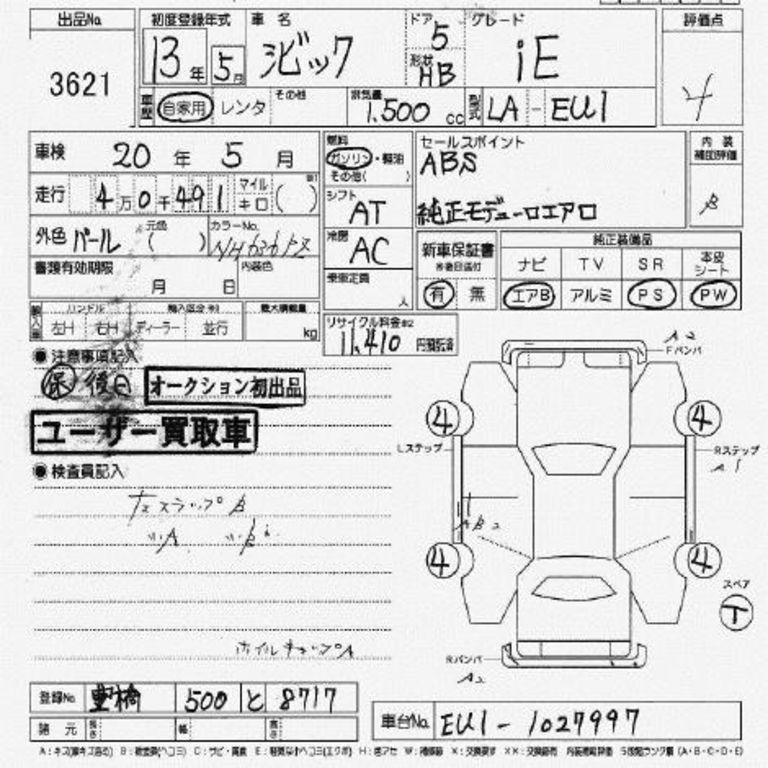 出品No. 3621
初度登録年式 13年 5月
車名 シビック
ドア 5
形状 HB
グレード iE
評価点 4
車歴 自家用 レンタ その他
排気量 1.500 cc
型式 LA - EU1
車検 20年 5月
走行 4万0千491 マイル キロ ( )
外色 パール 元色 ( ) カラーNo.
書類有効期限 月 日 内装色
輸入車 ハンドル 左H 右H ディーラー 並行 最大積載量 kg
燃料 ガソリン・軽油 その他( )
シフト AT
冷房 AC
乗車定員 人
リサイクル料金※2 11,410 円預託済
セールスポイント
ABS
純正モデューロエアロ
内装補助評価 B
新車保証書 ※後日送付 有 無
純正装備品
ナビ TV SR 本皮シート
エアB アルミ PS PW
●注意事項記入
保 後日 オークション初出品
ユーザー買取車
●検査員記入
ホイルキャップA
A2
Fバンパ
4 4
Lステップ
Rステップ
A1
4 4
スペア
T
Rバンパ
A2
登録No. 豊橋 500 と 8717
諸元 長さ 幅 高さ
車台No. EU1 - 1027997